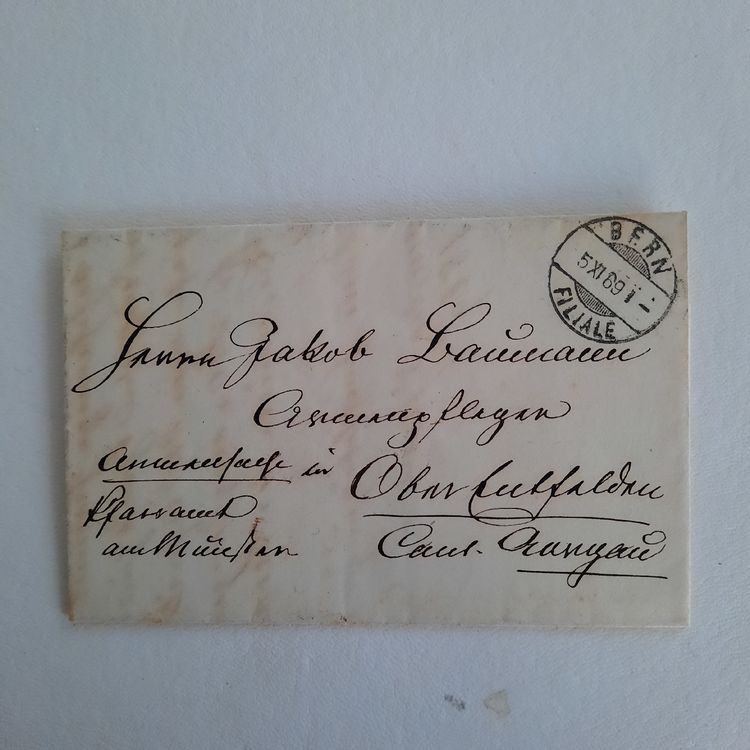 BERN
5 XI 69 1 –
FILIALE
Herrn Jakob Baumann
Armenpfleger
Armensache in Ober Entfelden
Pfarramt
am Münster Cant. Aargau